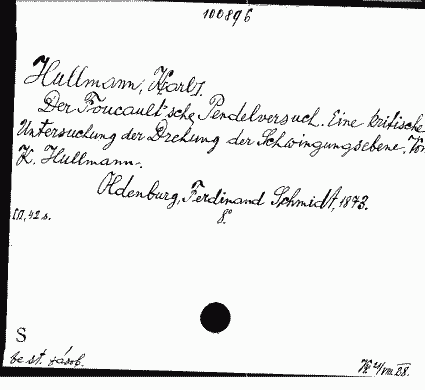 100896
Hullmann, K[arl].
Der Foucault'sche Pendelversuch. Eine kritische
Untersuchung der Drehung der Schwingungsebene. Von
K. Hullmann.
Oldenburg, Ferdinand Schmidt, 1873.
8°
42 s.
S
be st. jásob.
28.